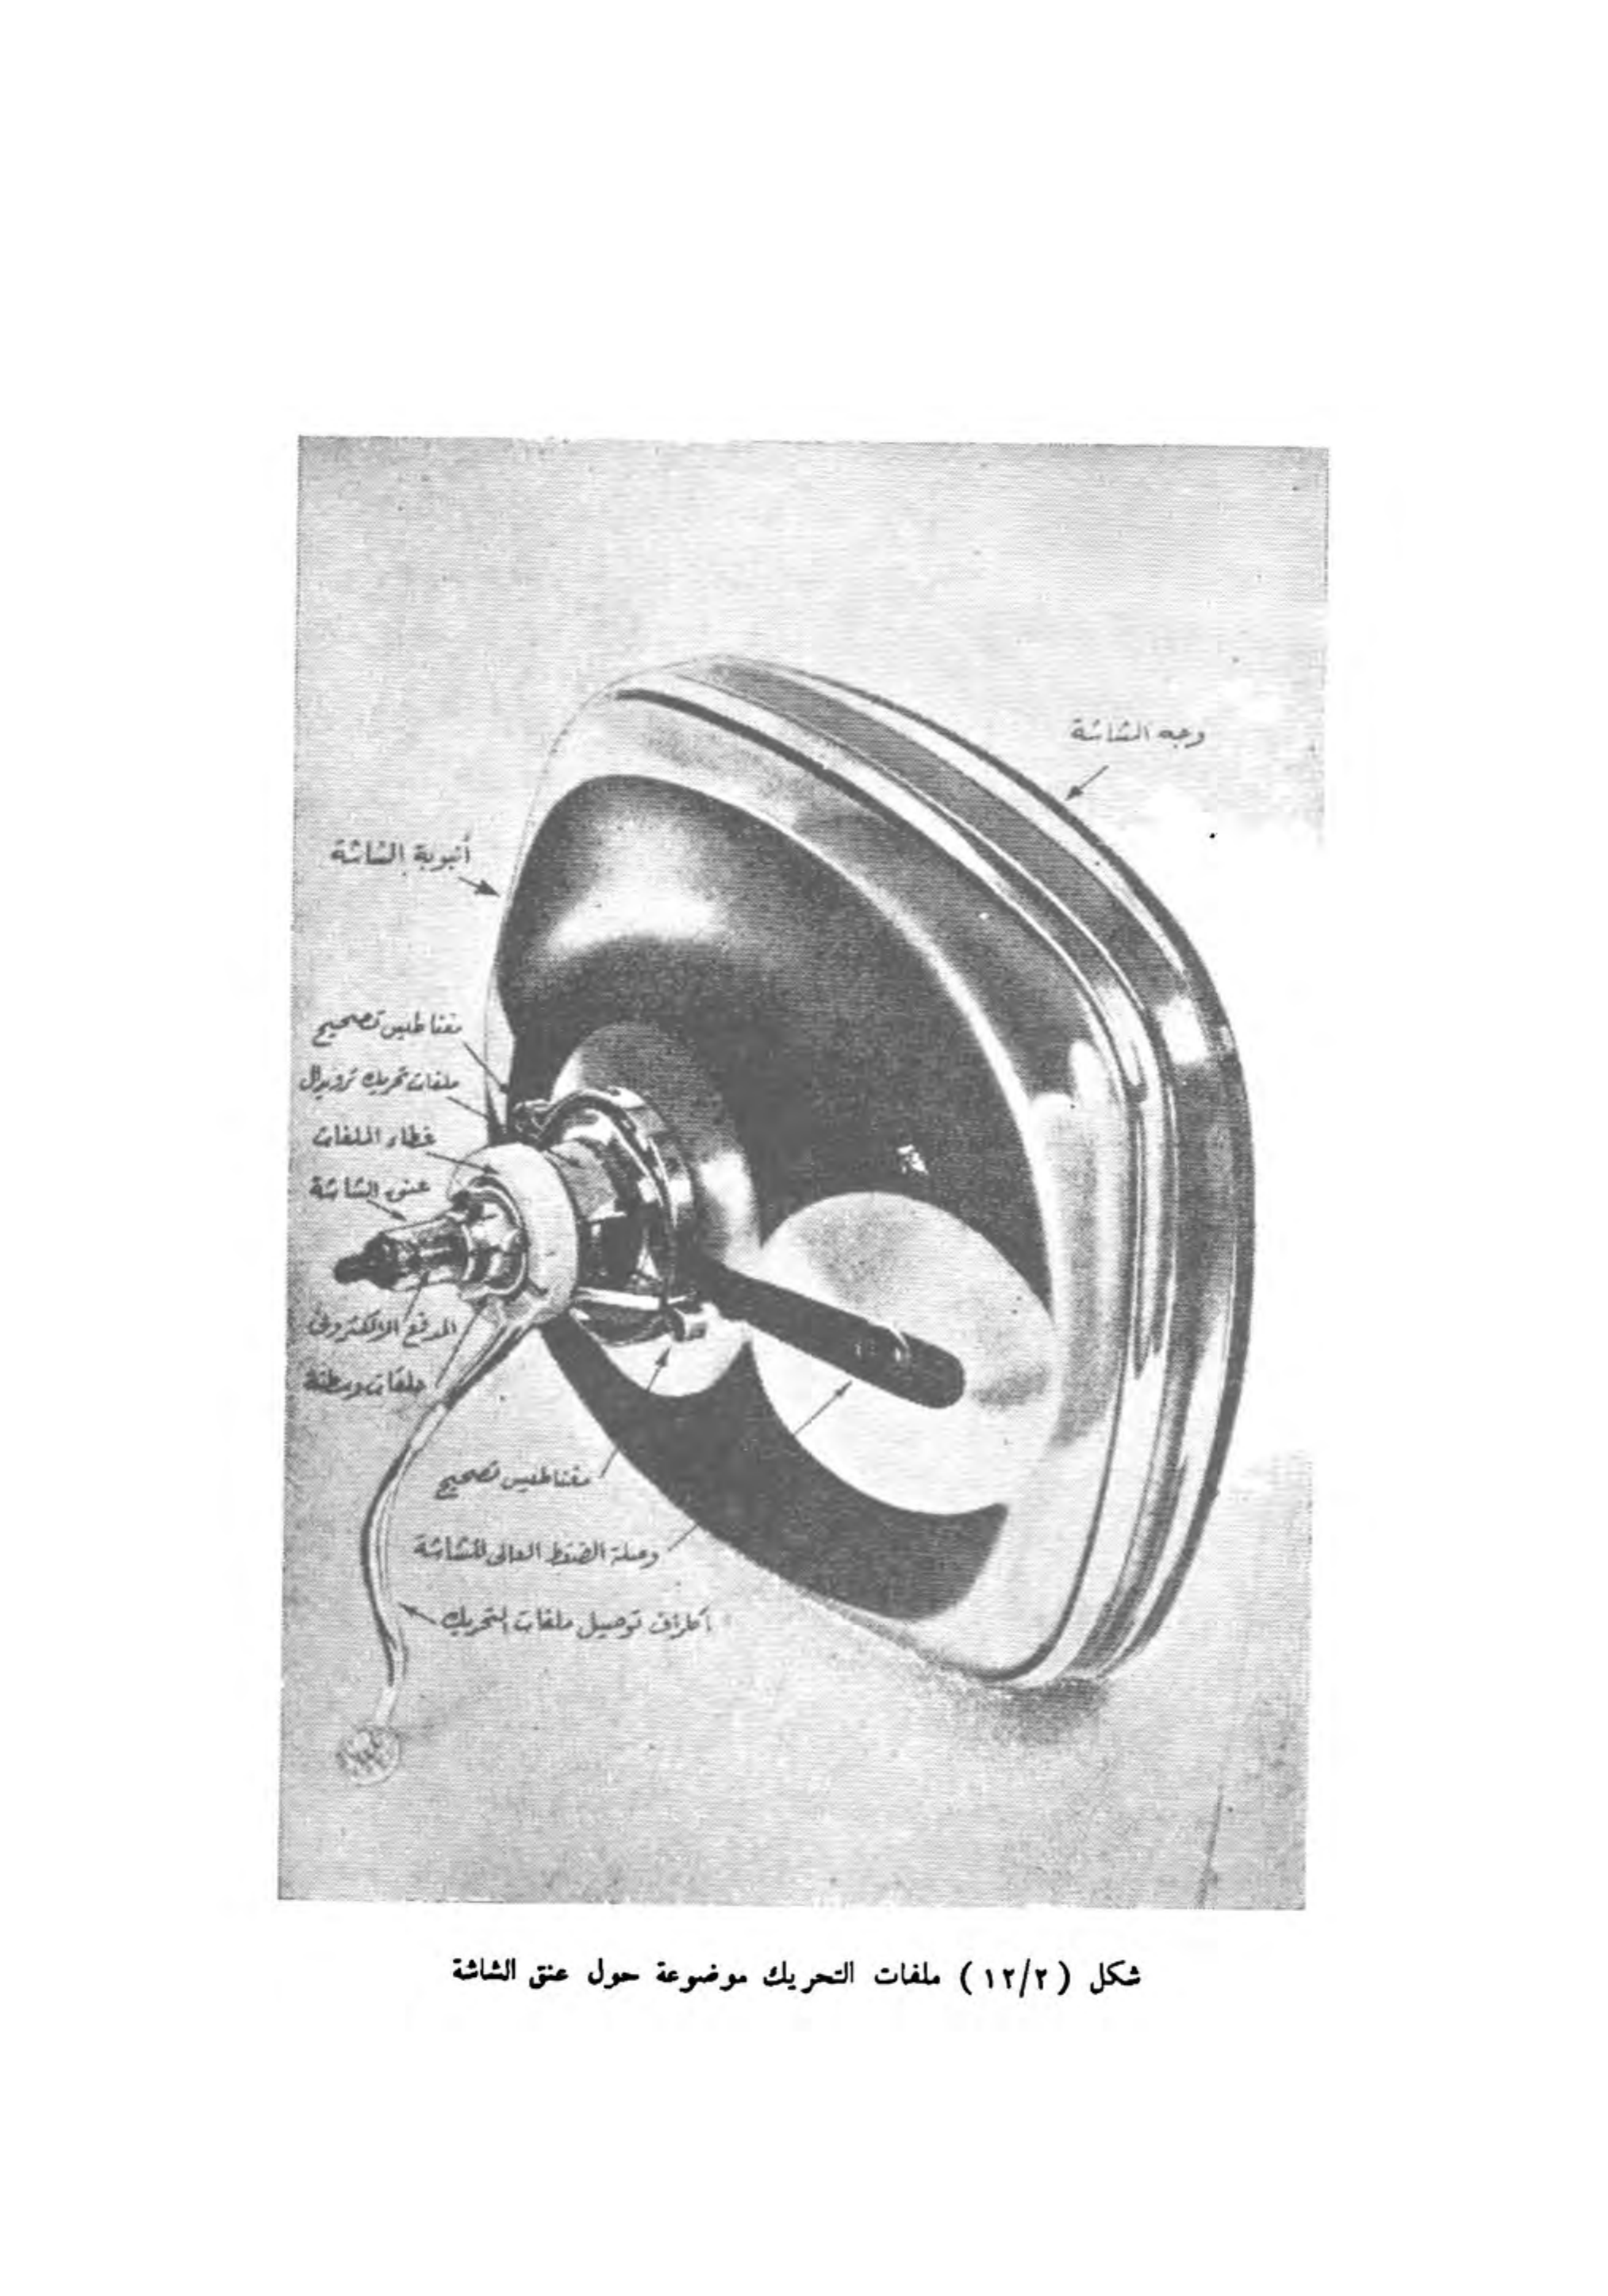 وجه الشاشة
أنبوبة الشاشة
مغناطيس تصحيح
ملفات تحريك ترويدال
غطاء الملفات
عنق الشاشة
المدفع الإلكتروني
حلقات
مغناطيس تصحيح
وصلة الضغط العالى للشاشة
أطراف توصيل ملفات التحريك
شكل (١٢/٢) ملفات التحريك موضوعة حول عنق الشاشة